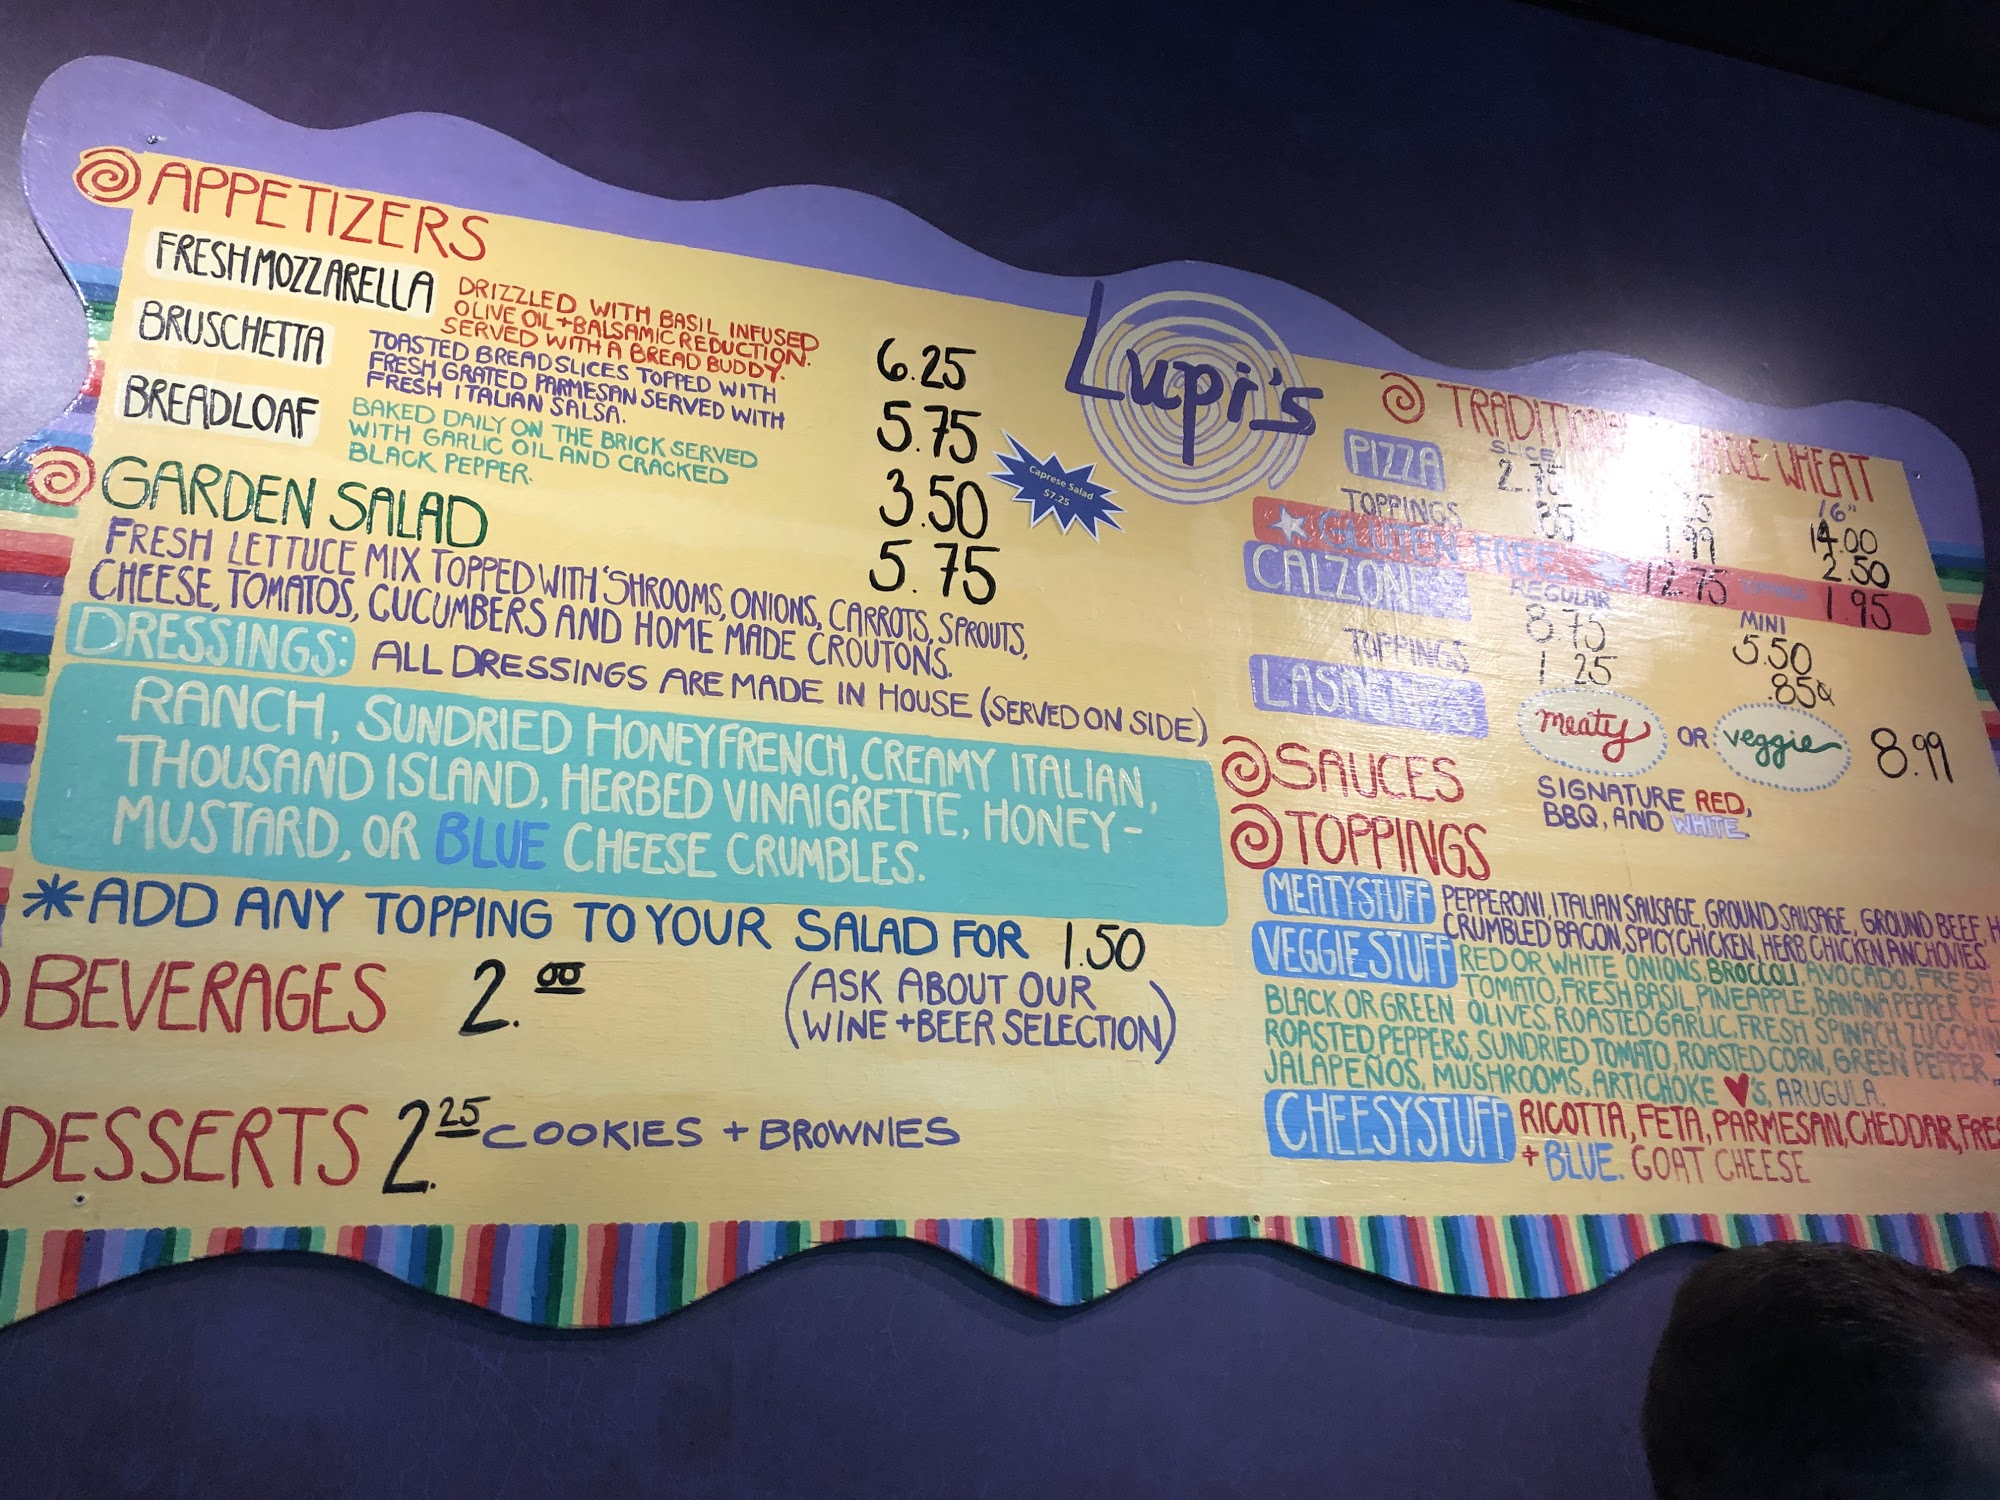 APPETIZERS
FRESH MOZZARELLA
DRIZZLED WITH BASIL INFUSED
OLIVE OIL + BALSAMIC REDUCTION.
SERVED WITH A BREAD BUDDY.
6.25
BRUSCHETTA
TOASTED BREAD SLICES TOPPED WITH
FRESH GRATED PARMESAN SERVED WITH
FRESH ITALIAN SALSA.
5.75
BREADLOAF
BAKED DAILY ON THE BRICK SERVED
WITH GARLIC OIL AND CRACKED
BLACK PEPPER.
3.50
GARDEN SALAD
5.75
FRESH LETTUCE MIX TOPPED WITH 'SHROOMS, ONIONS, CARROTS, SPROUTS,
CHEESE, TOMATOS, CUCUMBERS AND HOME MADE CROUTONS.
DRESSINGS: ALL DRESSINGS ARE MADE IN HOUSE (SERVED ON SIDE)
RANCH, SUNDRIED HONEY FRENCH, CREAMY ITALIAN,
THOUSAND ISLAND, HERBED VINAIGRETTE, HONEY-
MUSTARD, OR BLUE CHEESE CRUMBLES.
*ADD ANY TOPPING TO YOUR SALAD FOR 1.50
BEVERAGES 2.00
(ASK ABOUT OUR
WINE + BEER SELECTION)
DESSERTS 2.25 COOKIES + BROWNIES
Caprese Salad
$7.25
Lupi's
TRADITIONAL WHOLE WHEAT
PIZZA
SLICE 16"
2.75 14.00
TOPPINGS 1.99 2.50
GLUTEN FREE 12.75 1.95
CALZONES
REGULAR MINI
8.75 5.50
TOPPINGS 1.25 .85¢
LASAGNAS meaty OR veggie 8.99
SAUCES
SIGNATURE RED,
BBQ, AND WHITE
TOPPINGS
MEATY STUFF PEPPERONI, ITALIAN SAUSAGE, GROUND SAUSAGE, GROUND BEEF, H
CRUMBLED BACON, SPICY CHICKEN, HERB CHICKEN, ANCHOVIES
VEGGIE STUFF RED OR WHITE ONIONS, BROCCOLI, AVOCADO, FRESH
TOMATO, FRESH BASIL, PINEAPPLE, BANANA PEPPER, PE
BLACK OR GREEN OLIVES, ROASTED GARLIC, FRESH SPINACH, ZUCCHIN
ROASTED PEPPERS, SUNDRIED TOMATO, ROASTED CORN, GREEN PEPPER
JALAPEÑOS, MUSHROOMS, ARTICHOKE ♥'S, ARUGULA.
CHEESY STUFF RICOTTA, FETA, PARMESAN, CHEDDAR, FRES
+ BLUE. GOAT CHEESE